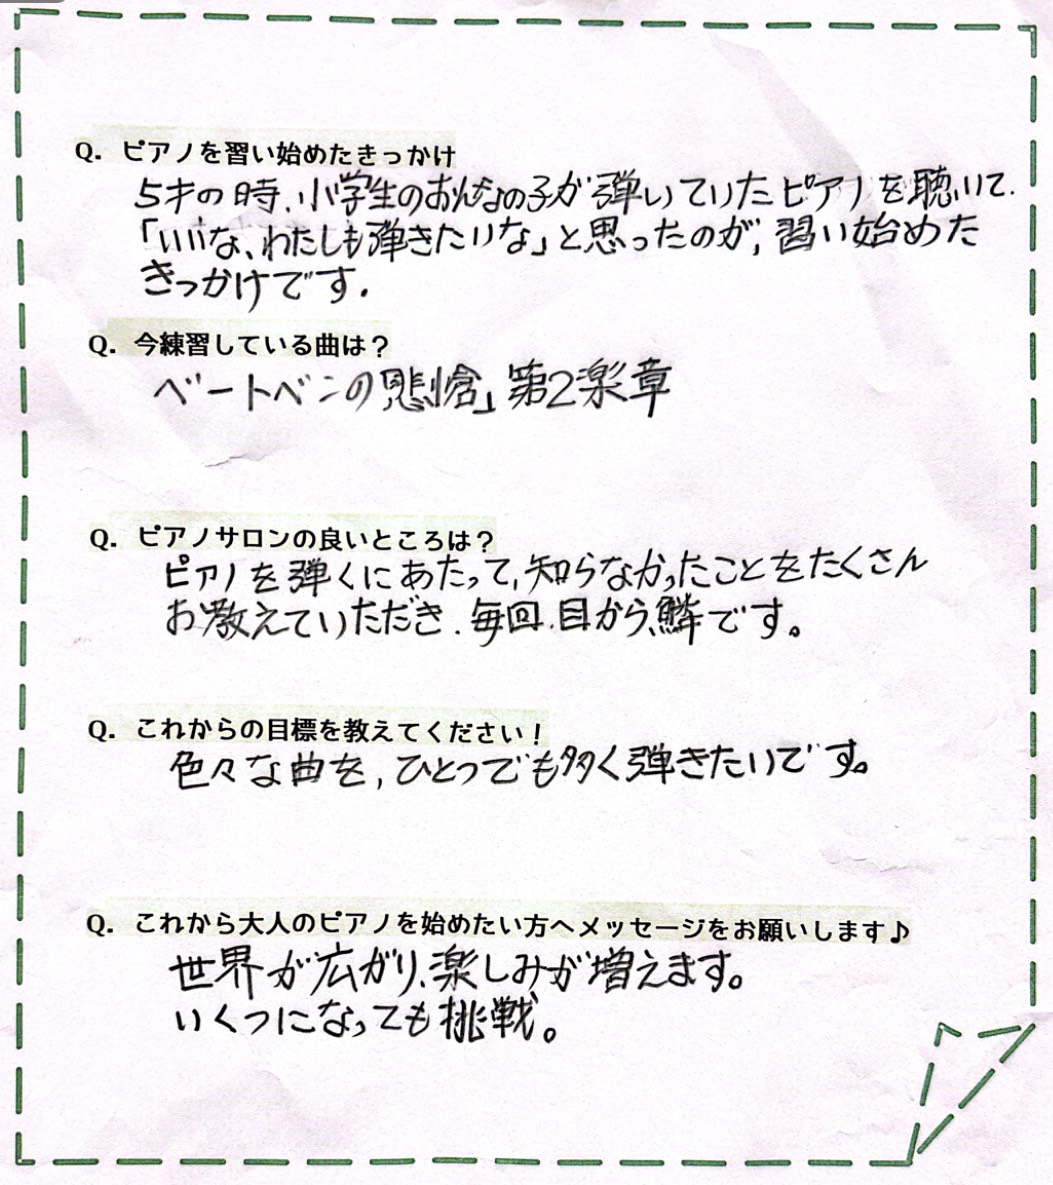 Q. ピアノを習い始めたきっかけ
5才の時、小学生のおんなの子が弾いていたピアノを聴いて、
「いいな、わたしも弾きたいな」と思ったのが、習い始めた
きっかけです。
Q. 今練習している曲は？
ベートベンの「悲愴」第2楽章
Q. ピアノサロンの良いところは？
ピアノを弾くにあたって、知らなかったことをたくさん
お教えていただき、毎回、目から鱗です。
Q. これからの目標を教えてください！
色々な曲を、ひとつでも多く弾きたいです。
Q. これから大人のピアノを始めたい方へメッセージをお願いします♪
世界が広がり、楽しみが増えます。
いくつになっても挑戦。